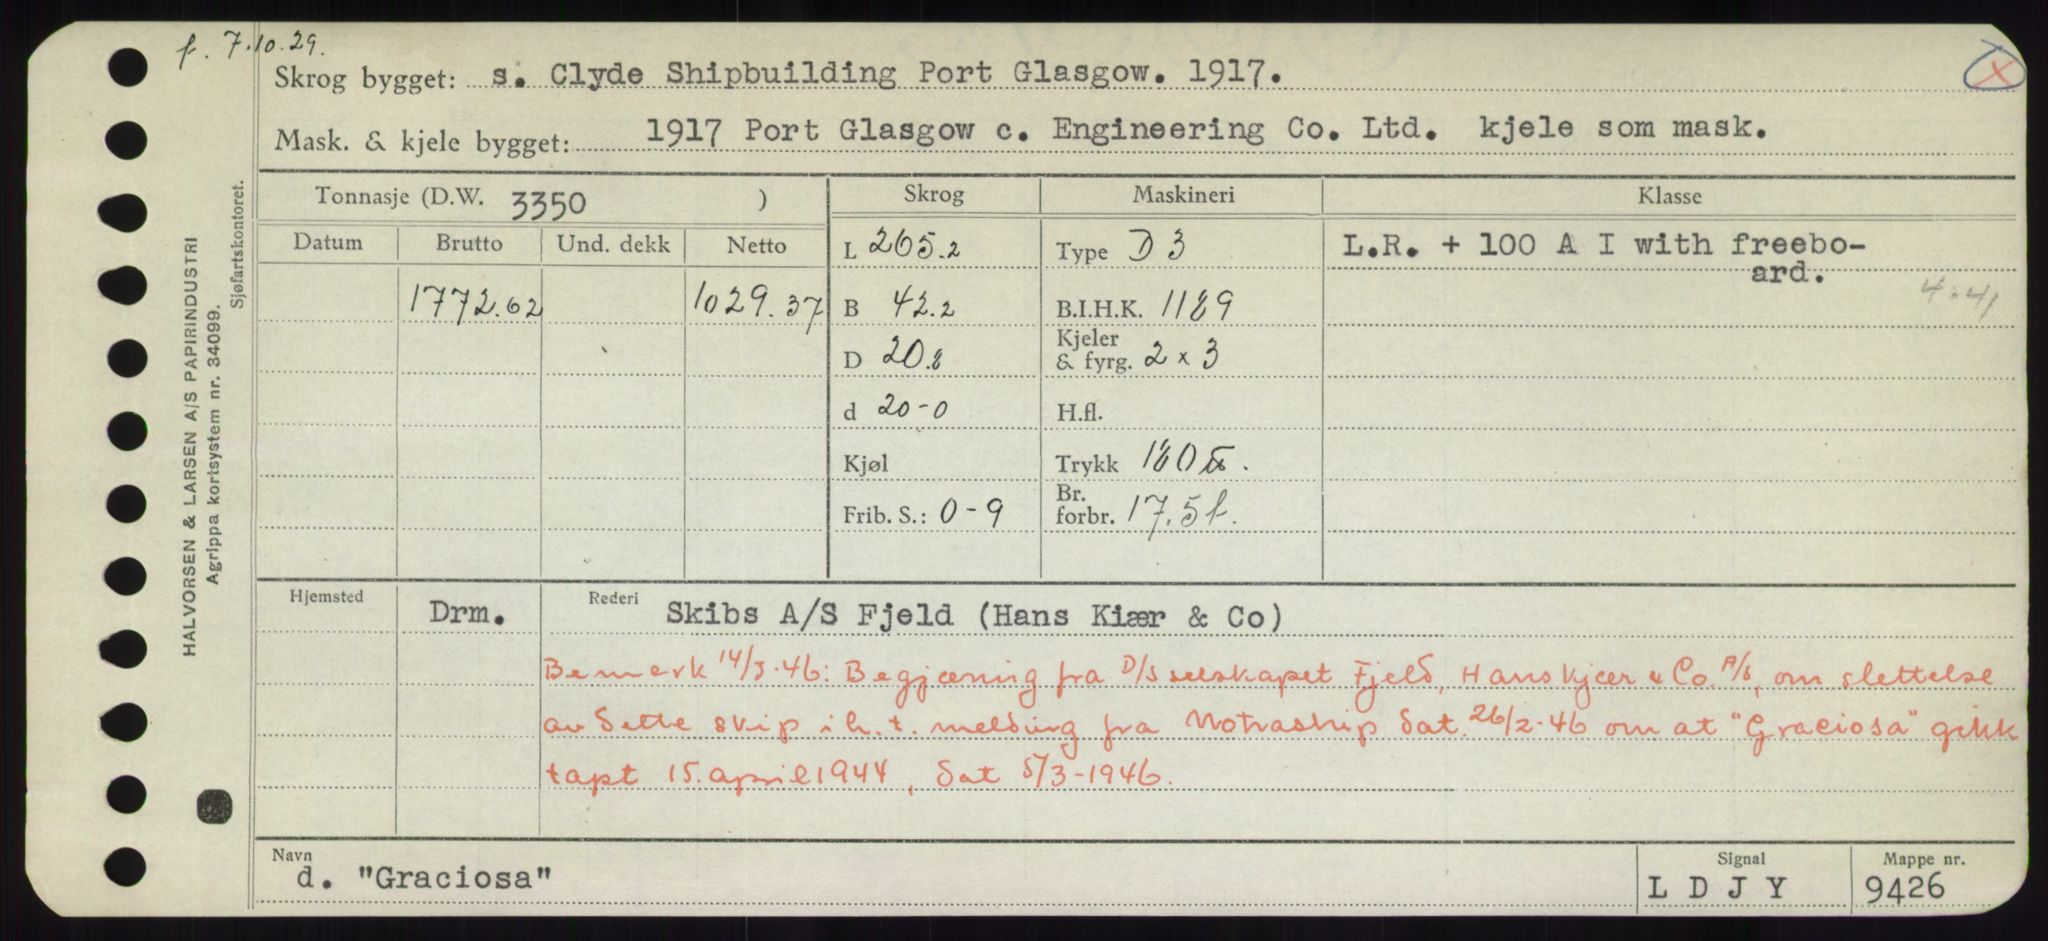 f. 7.10.29.
Skrog bygget: s. Clyde Shipbuilding Port Glasgow. 1917.
Mask. & kjele bygget: 1917 Port Glasgow c. Engineering Co. Ltd. kjele som mask.
Tonnasje (D.W. 3350 ) Skrog Maskineri Klasse
Datum Brutto Und. dekk Netto L 265.2 Type D 3 L.R. + 100 A I with freebo-
ard.
4.41
1772.62 1029.37 B 42.2 B.I.H.K. 1189
D 20.8 Kjeler
& fyrg. 2 x 3
d 20-0 H.fl.
Kjøl Trykk 180
Frib. S.: 0-9 Br.
forbr. 17.5 t.
Hjemsted Drm. Rederi Skibs A/S Fjeld (Hans Kiær & Co)
Bemerk 14/3-46: Begjæring fra D/Sselskapet Fjeld, Hans Kjær & Co. A/S, om slettelse
av dette skip i h. t. melding fra Notraship dat. 26/2-46 om at "Graciosa" gikk
tapt 15. april 1944, dat 5/3-1946.
Navn Signal Mappe nr.
d. "Graciosa" L D J Y 9426
HALVORSEN & LARSEN A/S PAPIRINDUSTRI
Agrippa kortsystem nr. 34099.
Sjøfartskontoret.